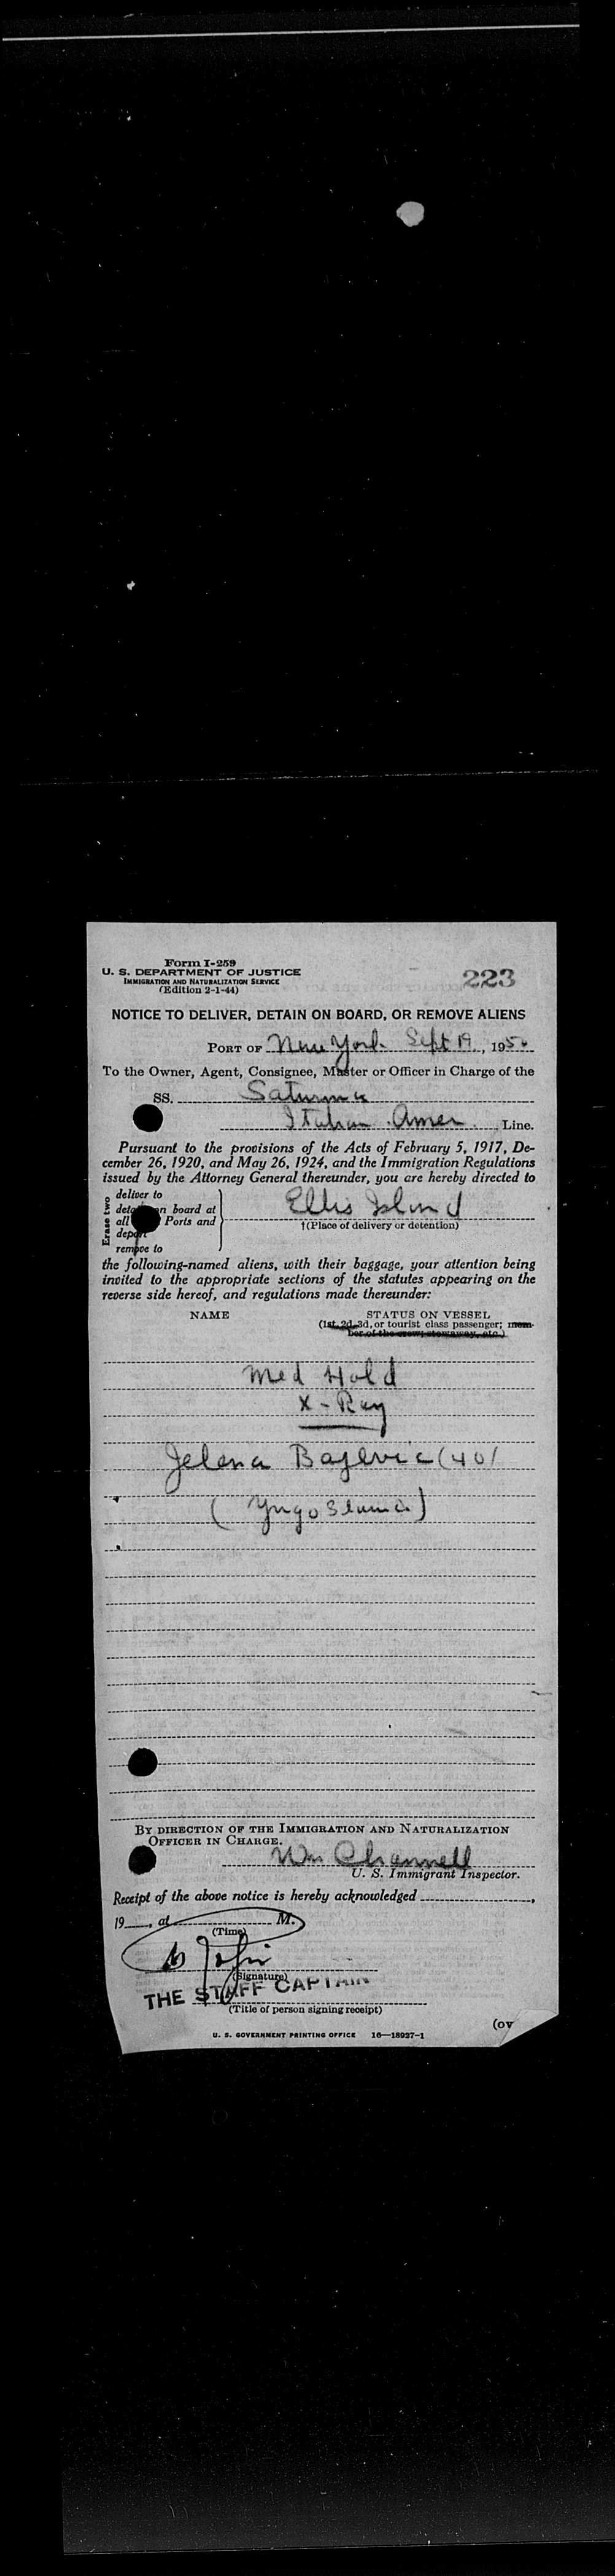 Form I-259
U. S. DEPARTMENT OF JUSTICE
IMMIGRATION AND NATURALIZATION SERVICE
(Edition 2-1-44)
223
NOTICE TO DELIVER, DETAIN ON BOARD, OR REMOVE ALIENS
PORT OF New York Sept 19, 1950
To the Owner, Agent, Consignee, Master or Officer in Charge of the
SS. Saturnia
Italian Amer Line.
Pursuant to the provisions of the Acts of February 5, 1917, De-
cember 26, 1920, and May 26, 1924, and the Immigration Regulations
issued by the Attorney General thereunder, you are hereby directed to
Erase two
deliver to
on board at
all Ports and
remove to
Ellis Island
†(Place of delivery or detention)
the following-named aliens, with their baggage, your attention being
invited to the appropriate sections of the statutes appearing on the
reverse side hereof, and regulations made thereunder:
NAME STATUS ON VESSEL
(1st, 2d, 3d, or tourist class passenger; mem-
ber of the crew; stowaway, etc.)
Med Hold
X-Ray
Jelena Bajevic (40)
(Yugoslavia)
BY DIRECTION OF THE IMMIGRATION AND NATURALIZATION
OFFICER IN CHARGE.
Wm Channell
U. S. Immigrant Inspector.
Receipt of the above notice is hereby acknowledged ,
19 , at M.
(Time)
(Signature)
THE STAFF CAPTAIN
(Title of person signing receipt)
(ov
U. S. GOVERNMENT PRINTING OFFICE 16—18927-1